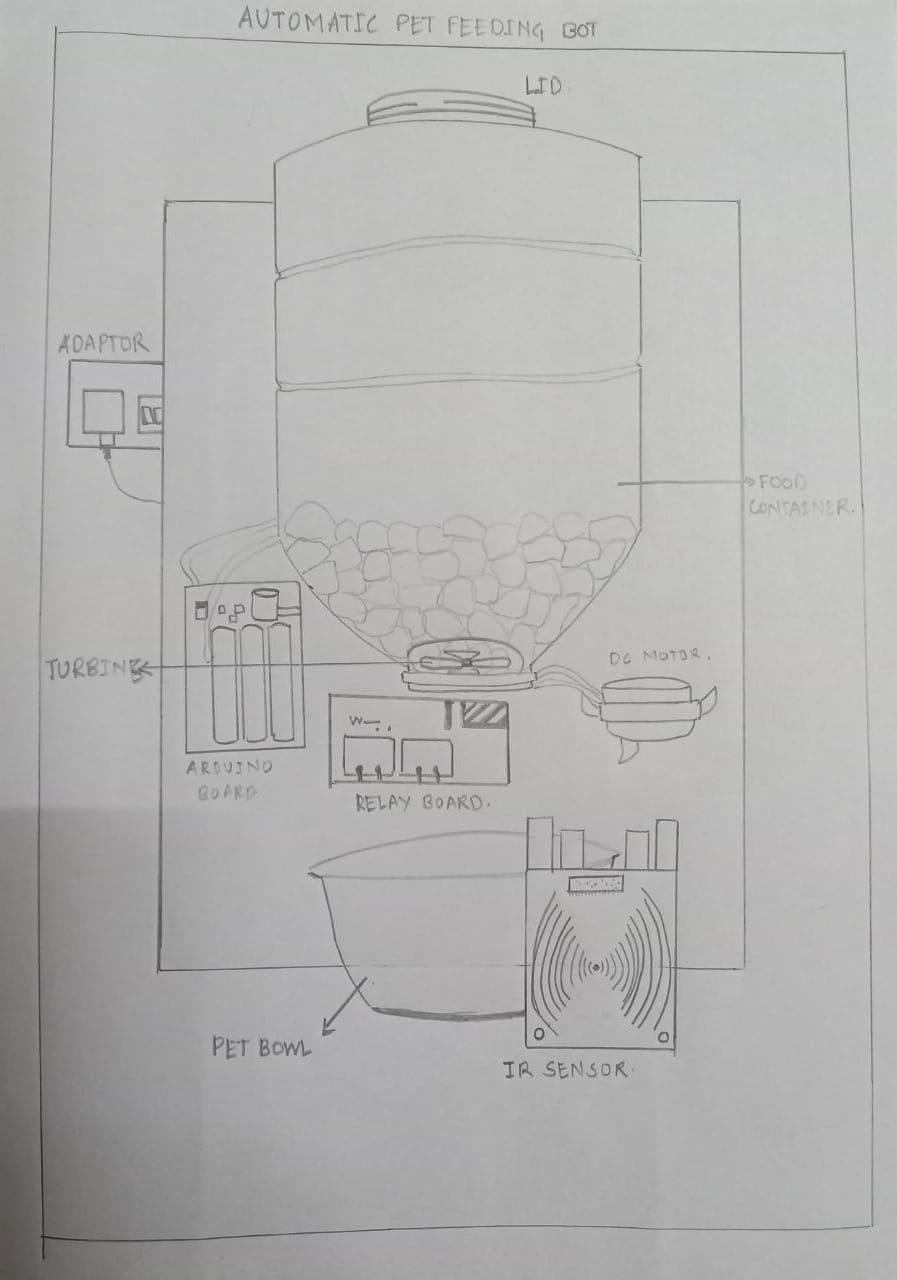 AUTOMATIC PET FEEDING BOT
LID.
ADAPTOR
FOOD
CONTAINER.
TURBINE
DC MOTOR.
ARDUINO
BOARD
RELAY BOARD.
PET BOWL
IR SENSOR.